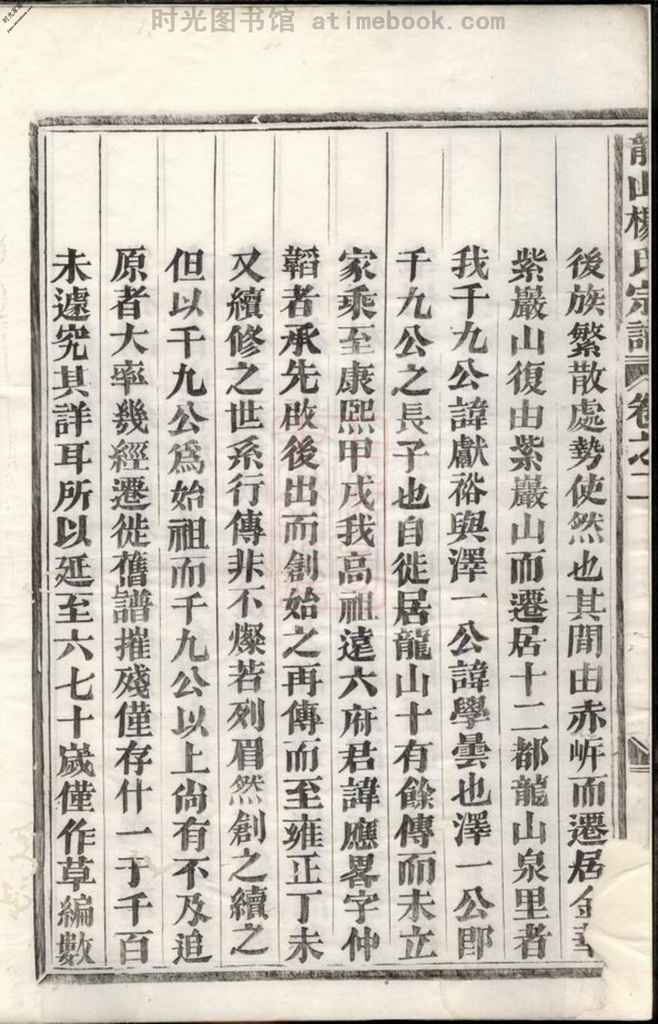 时光图书馆 atimebook.com
龍山楊氏宗譜 卷之二
後族繁散處勢使然也其間由赤岸而遷居金華
紫巖山復由紫巖山而遷居十二都龍山泉里者
我千九公諱獻裕與澤一公諱學曇也澤一公即
千九公之長子也自徙居龍山十有餘傳而未立
家乘至康熙甲戌我高祖遠六府君諱應畧字仲
韜者承先啟後出而創始之再傳而至雍正丁未
又續修之世系行傳非不燦若列眉然創之續之
但以千九公爲始祖而千九公以上尚有不及追
原者大率幾經遷徙舊譜摧殘僅存什一于千百
未遽究其詳耳所以延至六七十歲僅作草編數